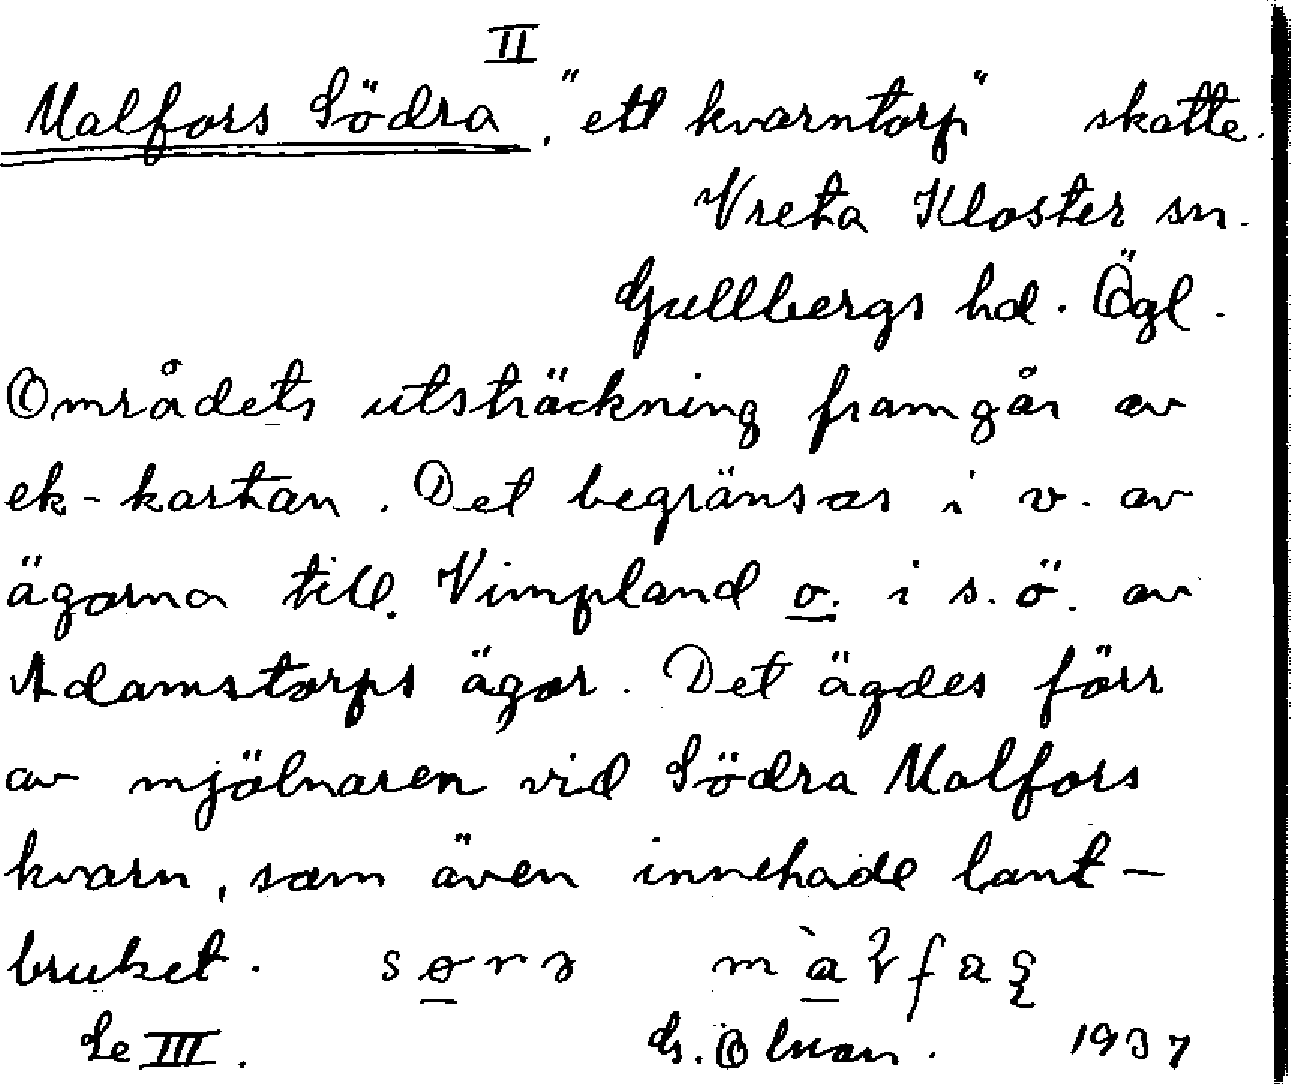 II
Malfors Södra, "ett kvarntorp" skatte.
Vreta Kloster sn.
Gullbergs hd. Ögl.
Området​s utsträckning framgår av
ek-kartan. Det begränsas i v. av
ägorna till Vimpland o. i s.ö. av
Adamstorps ägor. Det ägdes förr
av mjölnaren vid Södra Malfors
kvarn, som även innehade lant-
bruket.
Se III. G. 1937